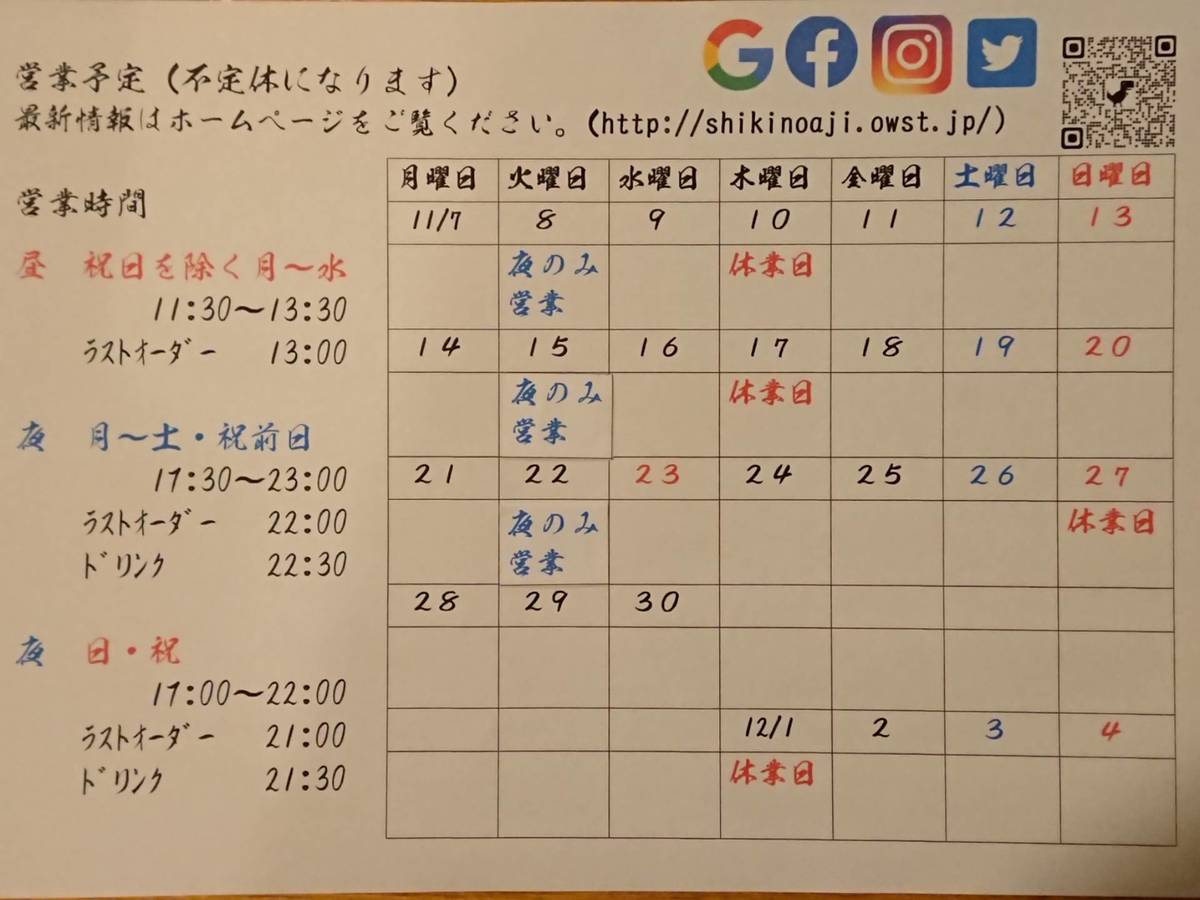 営業予定（不定休になります）
最新情報はホームページをご覧ください。(http://shikinoaji.owst.jp/)
営業時間
昼 祝日を除く月～水
11:30～13:30
ﾗｽﾄｵｰﾀﾞｰ 13:00
夜 月～土・祝前日
17:30～23:00
ﾗｽﾄｵｰﾀﾞｰ 22:00
ﾄﾞﾘﾝｸ 22:30
夜 日・祝
17:00～22:00
ﾗｽﾄｵｰﾀﾞｰ 21:00
ﾄﾞﾘﾝｸ 21:30
月曜日 火曜日 水曜日 木曜日 金曜日 土曜日 日曜日
11/7 8 9 10 11 12 13
夜のみ 休業日
営業
14 15 16 17 18 19 20
夜のみ 休業日
営業
21 22 23 24 25 26 27
夜のみ 休業日
営業
28 29 30
12/1 2 3 4
休業日